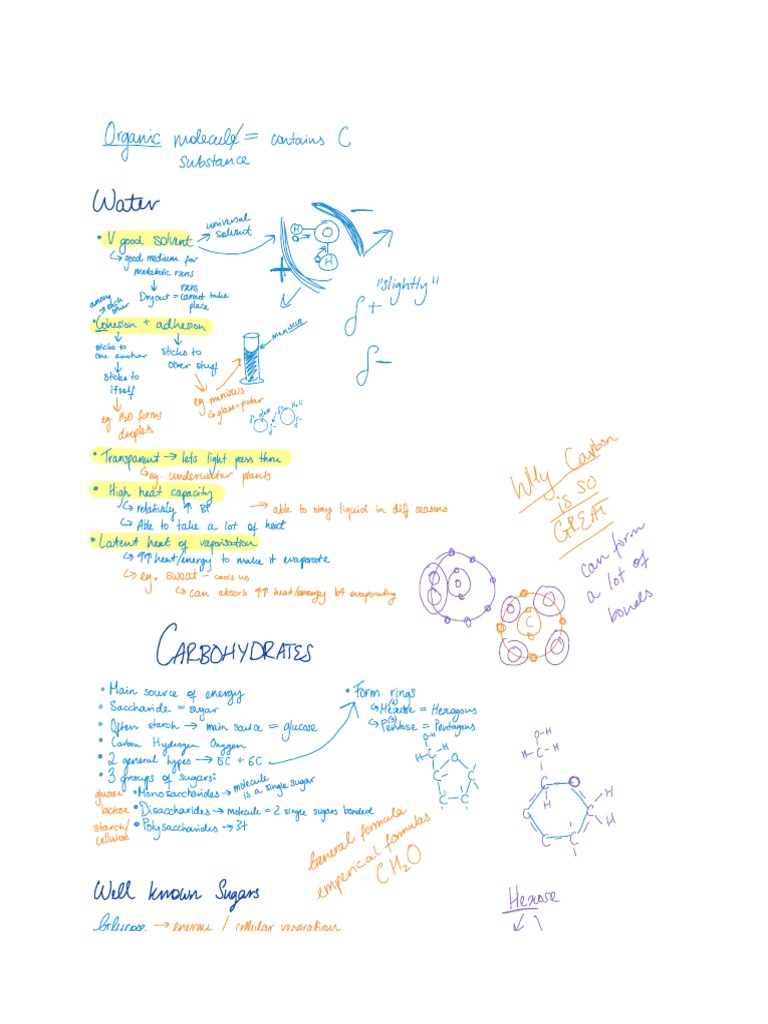 Organic molecule = contains C
substance
Water
• V good solvent → universal solvent
↳ good medium for metabolic rxns
Dry out = rxns cannot take place
H O H
+ −
"slightly"
δ+
δ−
among each other
• Cohesion + adhesion
sticks to one another
sticks to itself
eg. H2O forms droplets
sticks to other stuff
eg. meniscus
↳ glass = polar
meniscus
δ+ glass δ− δ+ H2O δ−
• Transparent → lets light pass thru
↳ eg. underwater plants
• High heat capacity
↳ relatively ↑ BP → able to stay liquid in diff seasons
↳ Able to take a lot of heat
• Latent heat of vaporisation
↳ ↑↑ heat/energy to make it evaporate
↳ eg. sweat – cools us
↳ can absorb ↑↑ heat/energy b4 evaporating
Why Carbon
is so
GREAT
can form
a lot of
bonds
O
C
CARBOHYDRATES
• Main source of energy
• Saccharide = sugar
• Often starch → main source = glucose
• Carbon Hydrogen Oxygen
• 2 general types → 5C + 6C
• 3 groups of sugars:
glucose • Monosaccharides → molecule is a single sugar
lactose • Disaccharides → molecule = 2 single sugars bonded
starch/cellulose • Polysaccharides → 3+
• Form rings
↳ Hexose = Hexagons (6)
↳ Pentose = Pentagons (5)
O-H
H-C-H
C O C
C C
O-H
H-C-H
C O C H
H H
C C C
General formula
emperical formulas
CH2O
Well known Sugars
Glucose → energy / cellular respiration
Hexose